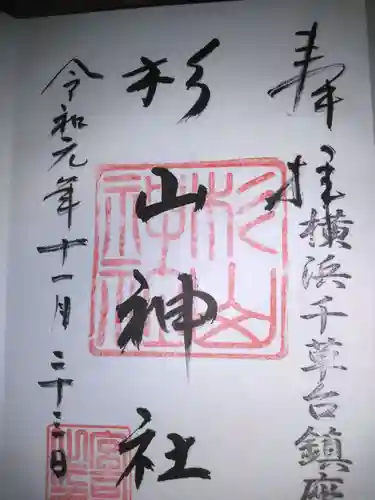 奉拝
横浜千草台鎮座
杉山神社
杉山神社
令和元年十一月二十三日